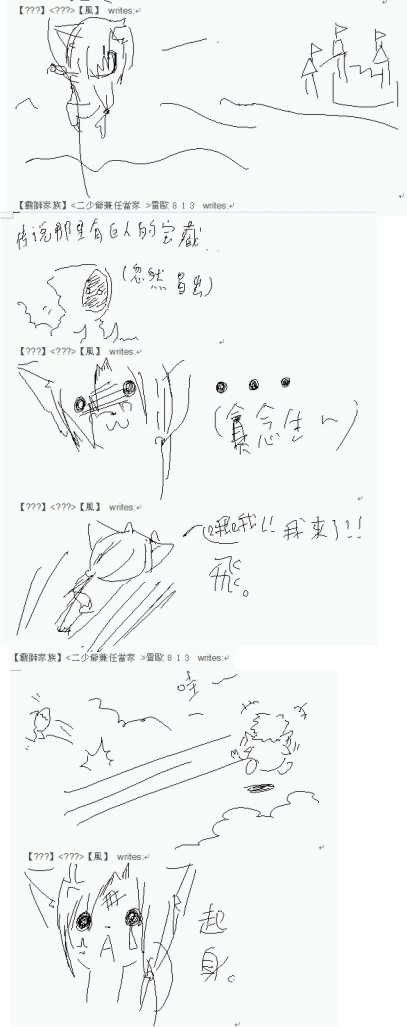 【???】<???>【風】 writes:↵
【霸獅家族】<二少爺兼任當家 >雷歐８１３ writes:↵
传说那里有巨人的宝藏..
(忽然冒出)
【???】<???>【風】 writes:↵
(貪念生～)
【???】<???>【風】 writes:↵
我來了!!
飛。
【霸獅家族】<二少爺兼任當家 >雷歐８１３ writes:↵
哇～
【???】<???>【風】 writes:↵
起
身。